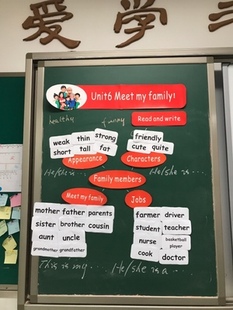 爱 学
Unit6 Meet my family!
healthy funny
Read and write
weak thin strong
short tall fat
friendly
cute quite
Appearance
Characters
He/she is...
He/she is...
Family members
Meet my family
Jobs
mother father parents
sister brother cousin
aunt uncle
grandmother grandfather
farmer driver
student teacher
nurse basketball player
cook doctor
This is my ...
He/she is a ...